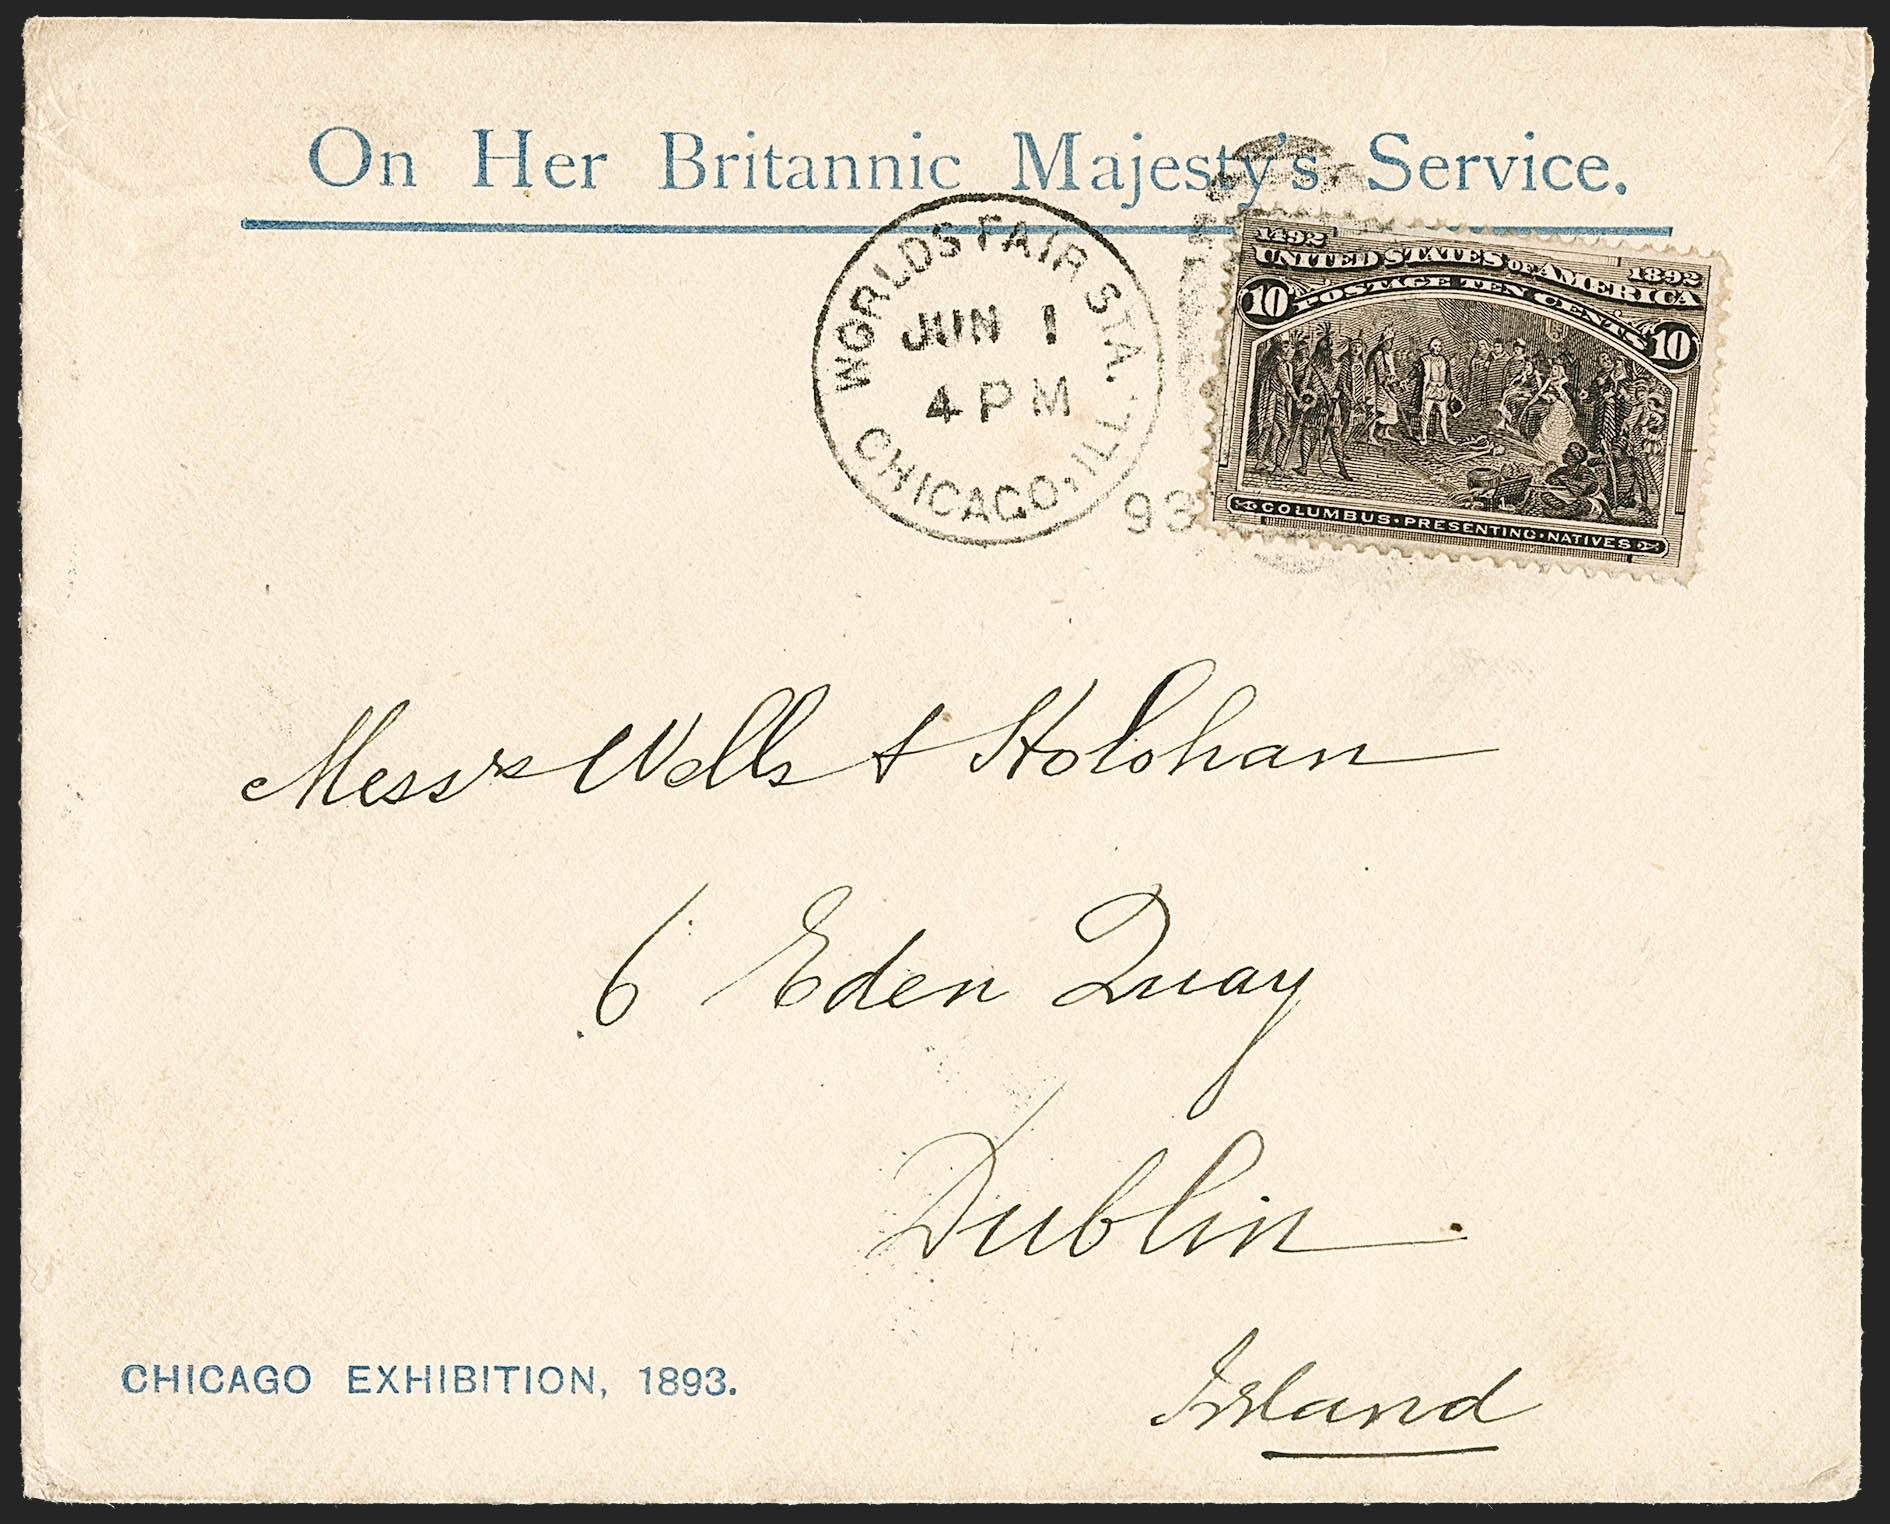 On Her Britannic Majesty's Service.
WORLDS FAIR STA.
JUN 1
4 PM
CHICAGO, ILL.
93
1492
1892
UNITED STATES OF AMERICA
POSTAGE TEN CENTS
10 10
COLUMBUS·PRESENTING·NATIVES
Messrs Wells & Holohan
6 Eden Quay
Dublin.
Ireland
CHICAGO EXHIBITION, 1893.